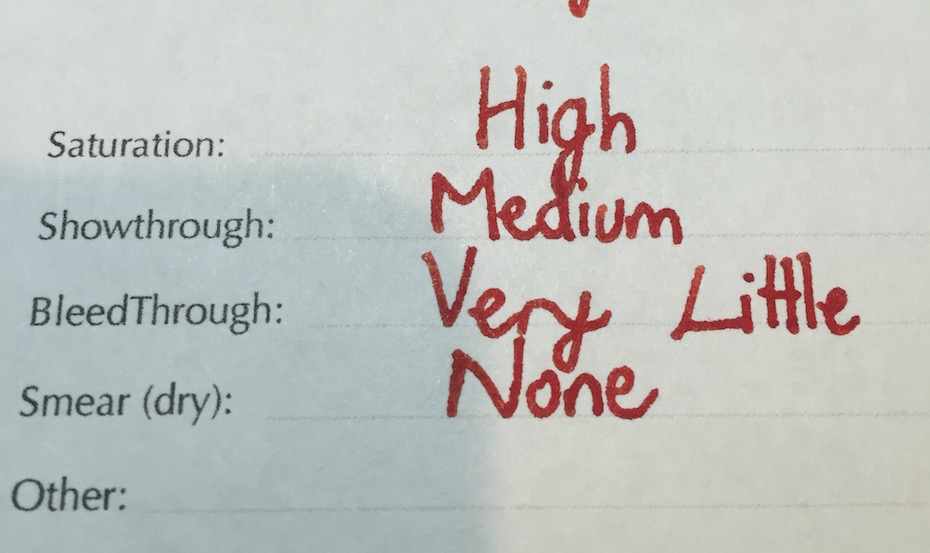 Saturation: High
Showthrough: Medium
BleedThrough: Very Little
Smear (dry): None
Other: